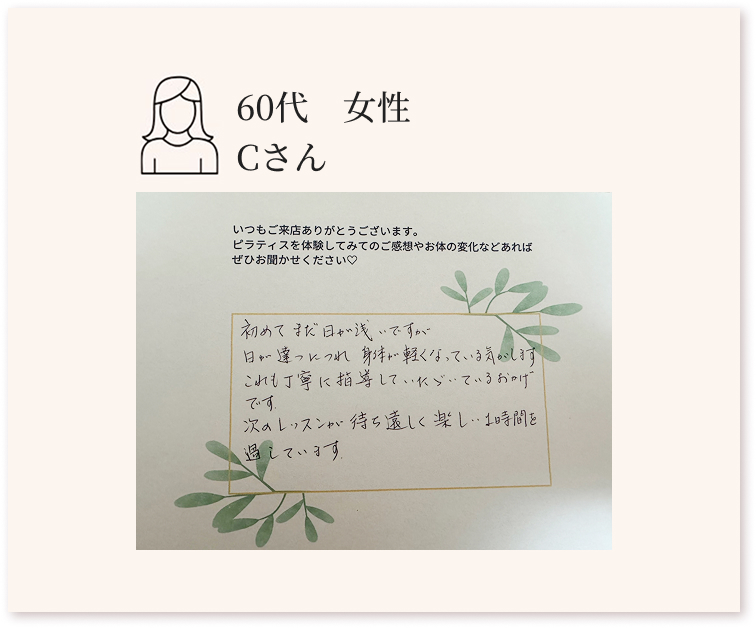 60代 女性
Cさん
いつもご来店ありがとうございます。
ピラティスを体験してみてのご感想やお体の変化などあれば
ぜひお聞かせください♡
初めてまだ日が浅いですが
日が違つにつれ 身体が軽くなっている気がします
これも丁寧に指導していただいているおかげ
です.
次のレッスンが待ち遠しく楽しい1時間を
過しています.